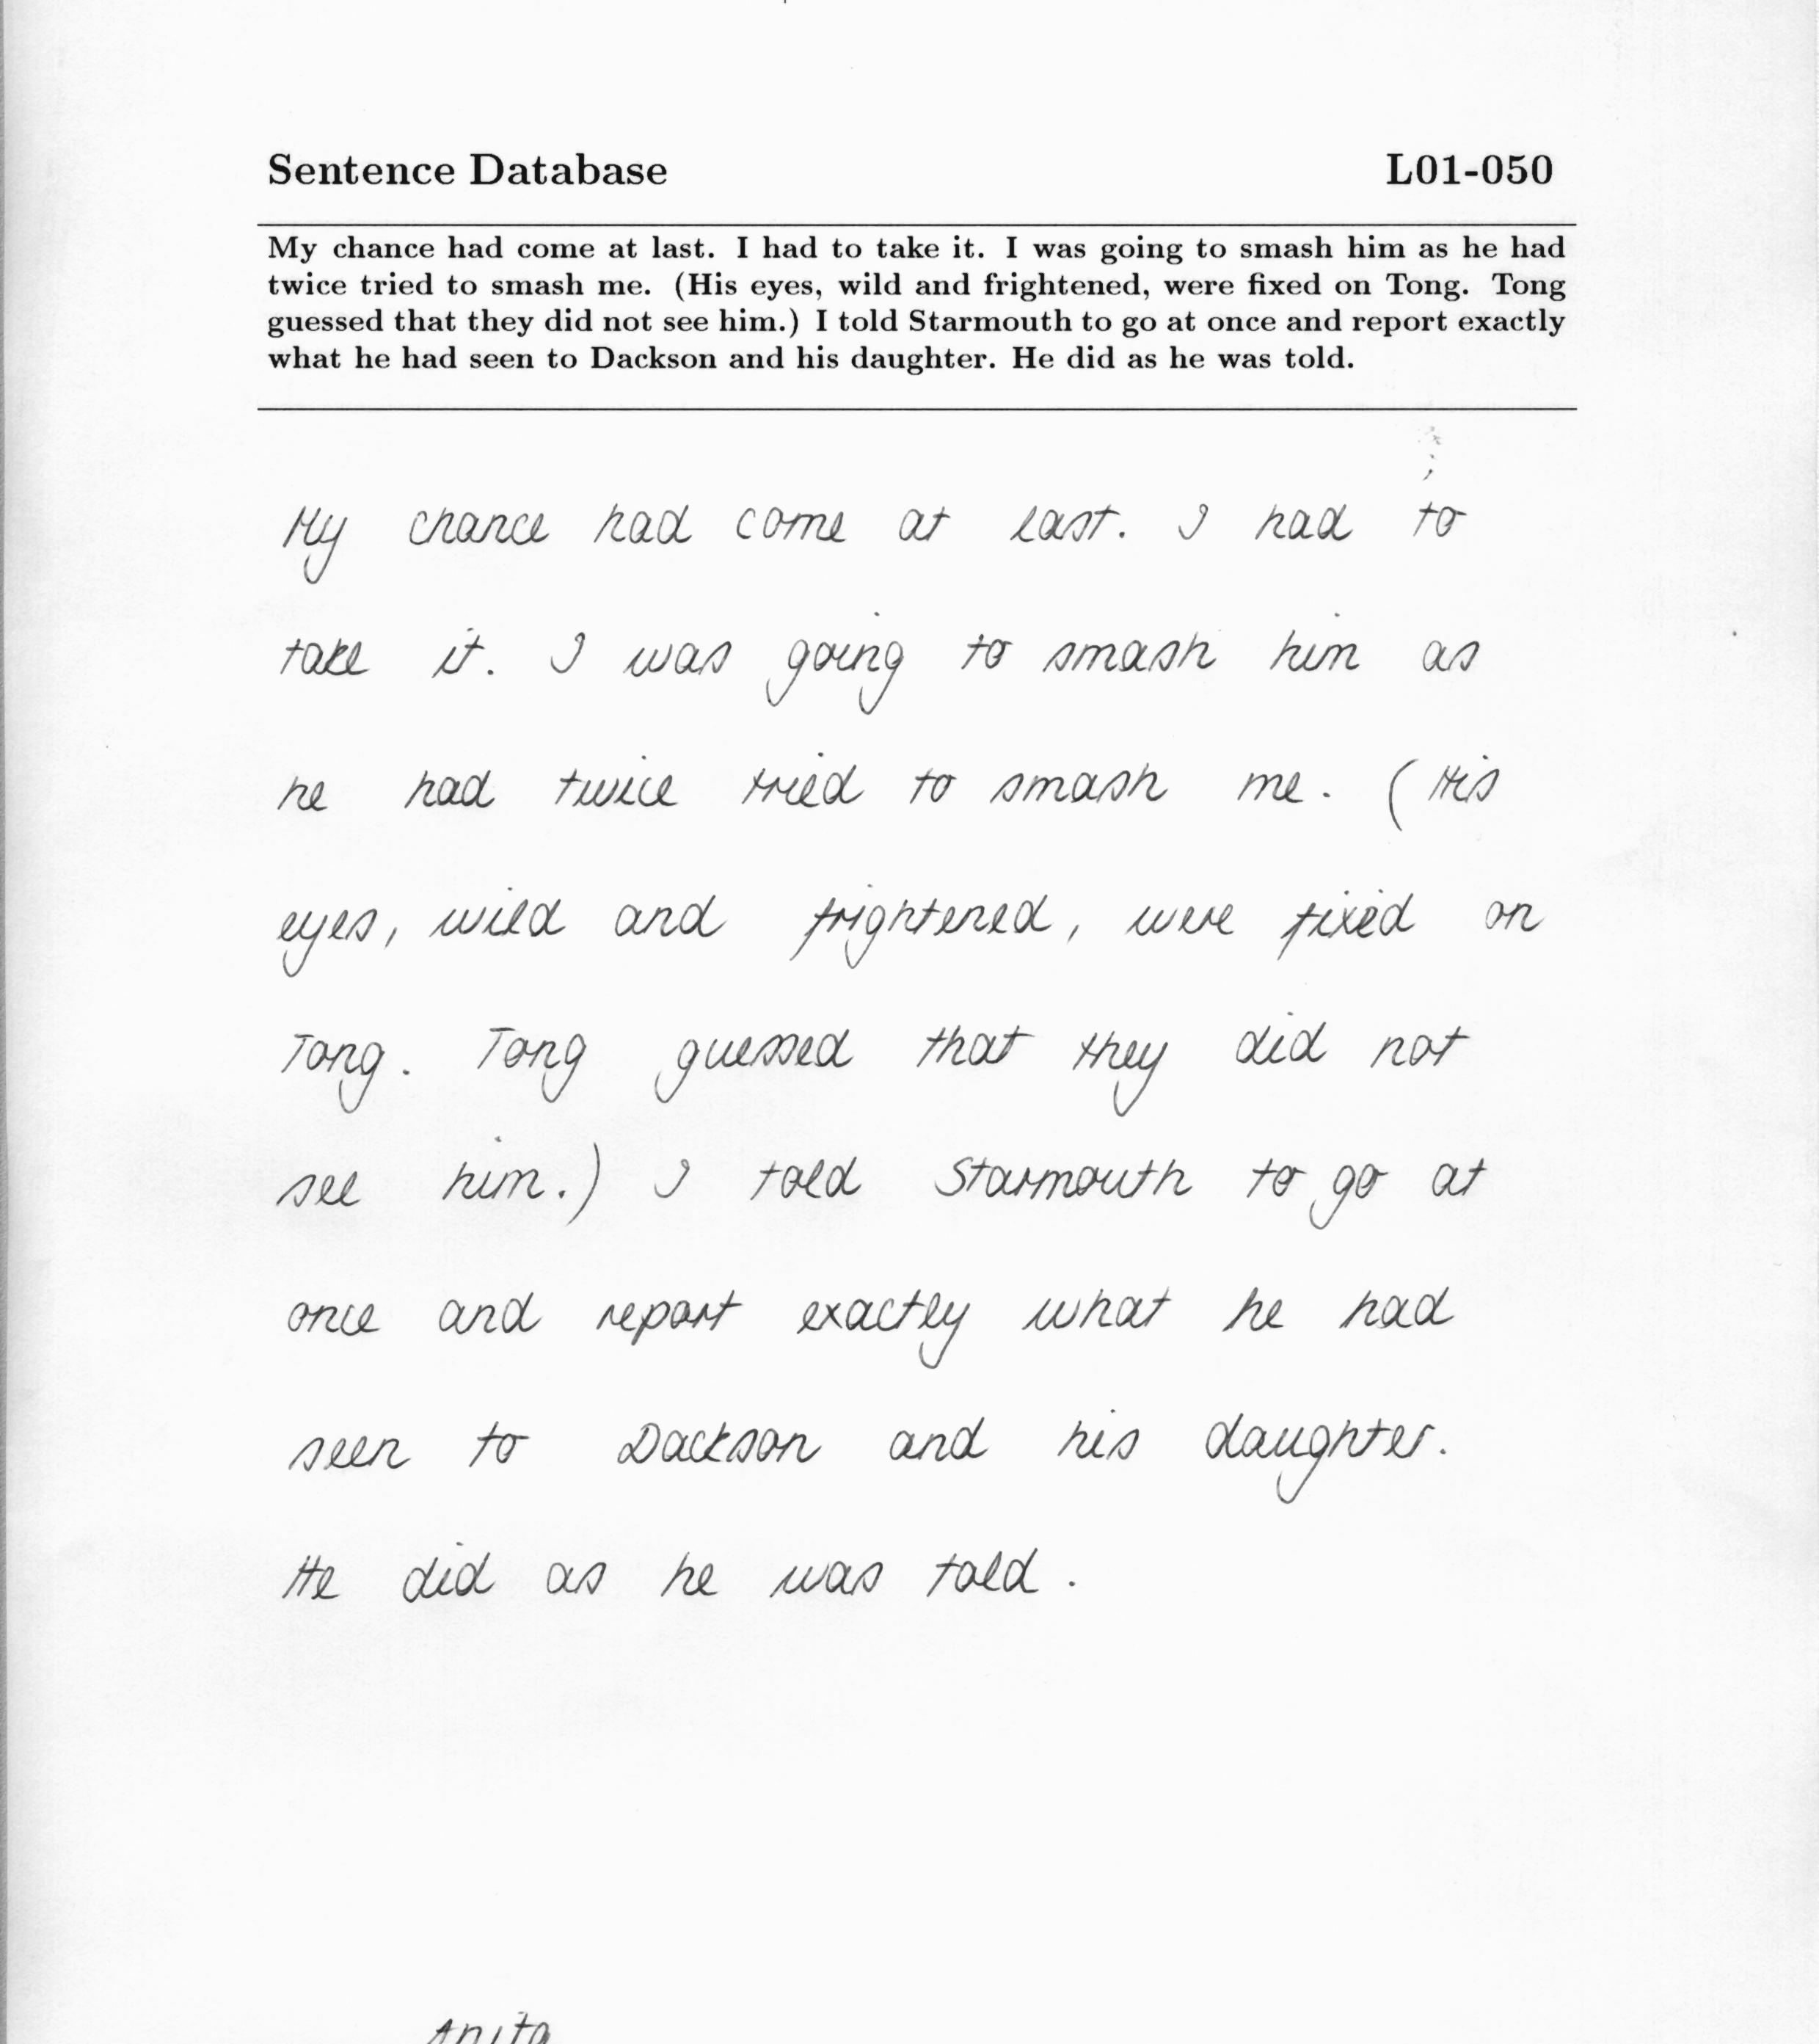 Sentence Database L01-050
My chance had come at last. I had to take it. I was going to smash him as he had
twice tried to smash me. (His eyes, wild and frightened, were fixed on Tong. Tong
guessed that they did not see him.) I told Starmouth to go at once and report exactly
what he had seen to Dackson and his daughter. He did as he was told.
My chance had come at last. I had to
take it. I was going to smash him as
he had twice tried to smash me. (His
eyes, wild and frightened, were fixed on
Tong. Tong guessed that they did not
see him.) I told Starmouth to go at
once and report exactly what he had
seen to Dackson and his daughter.
He did as he was told.
Anita